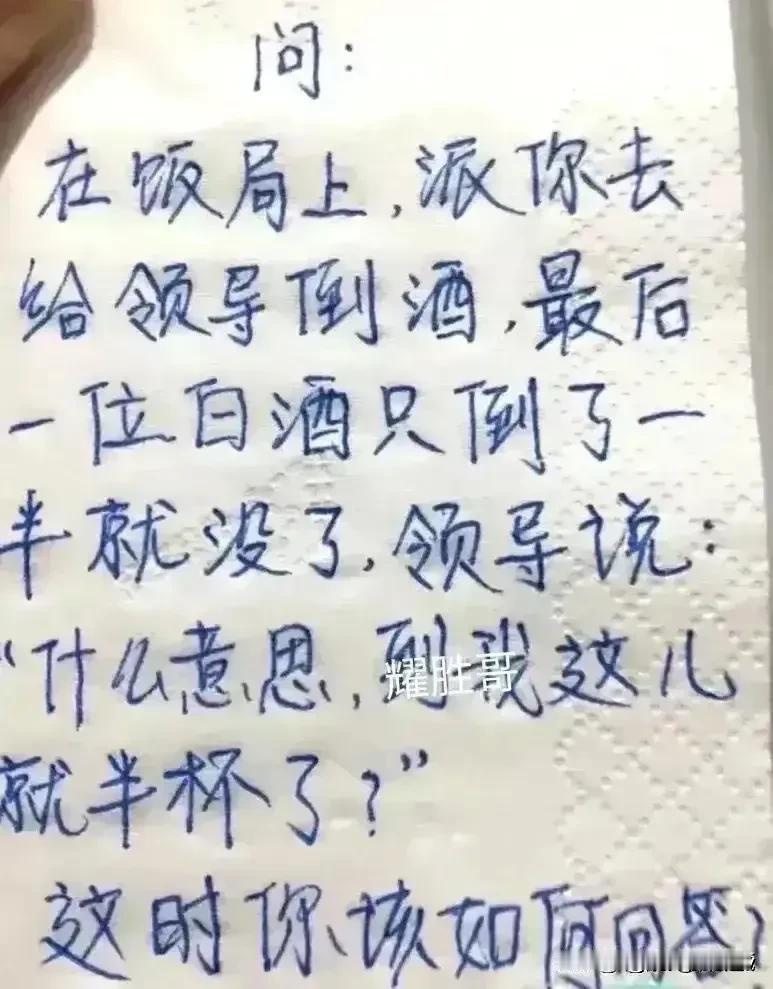 问：
在饭局上，派你去
给领导倒酒，最后
一位白酒只倒了一
半就没了，领导说：
“什么意思，到我这儿
耀胜哥
就半杯了？”
这时你该如何回答？